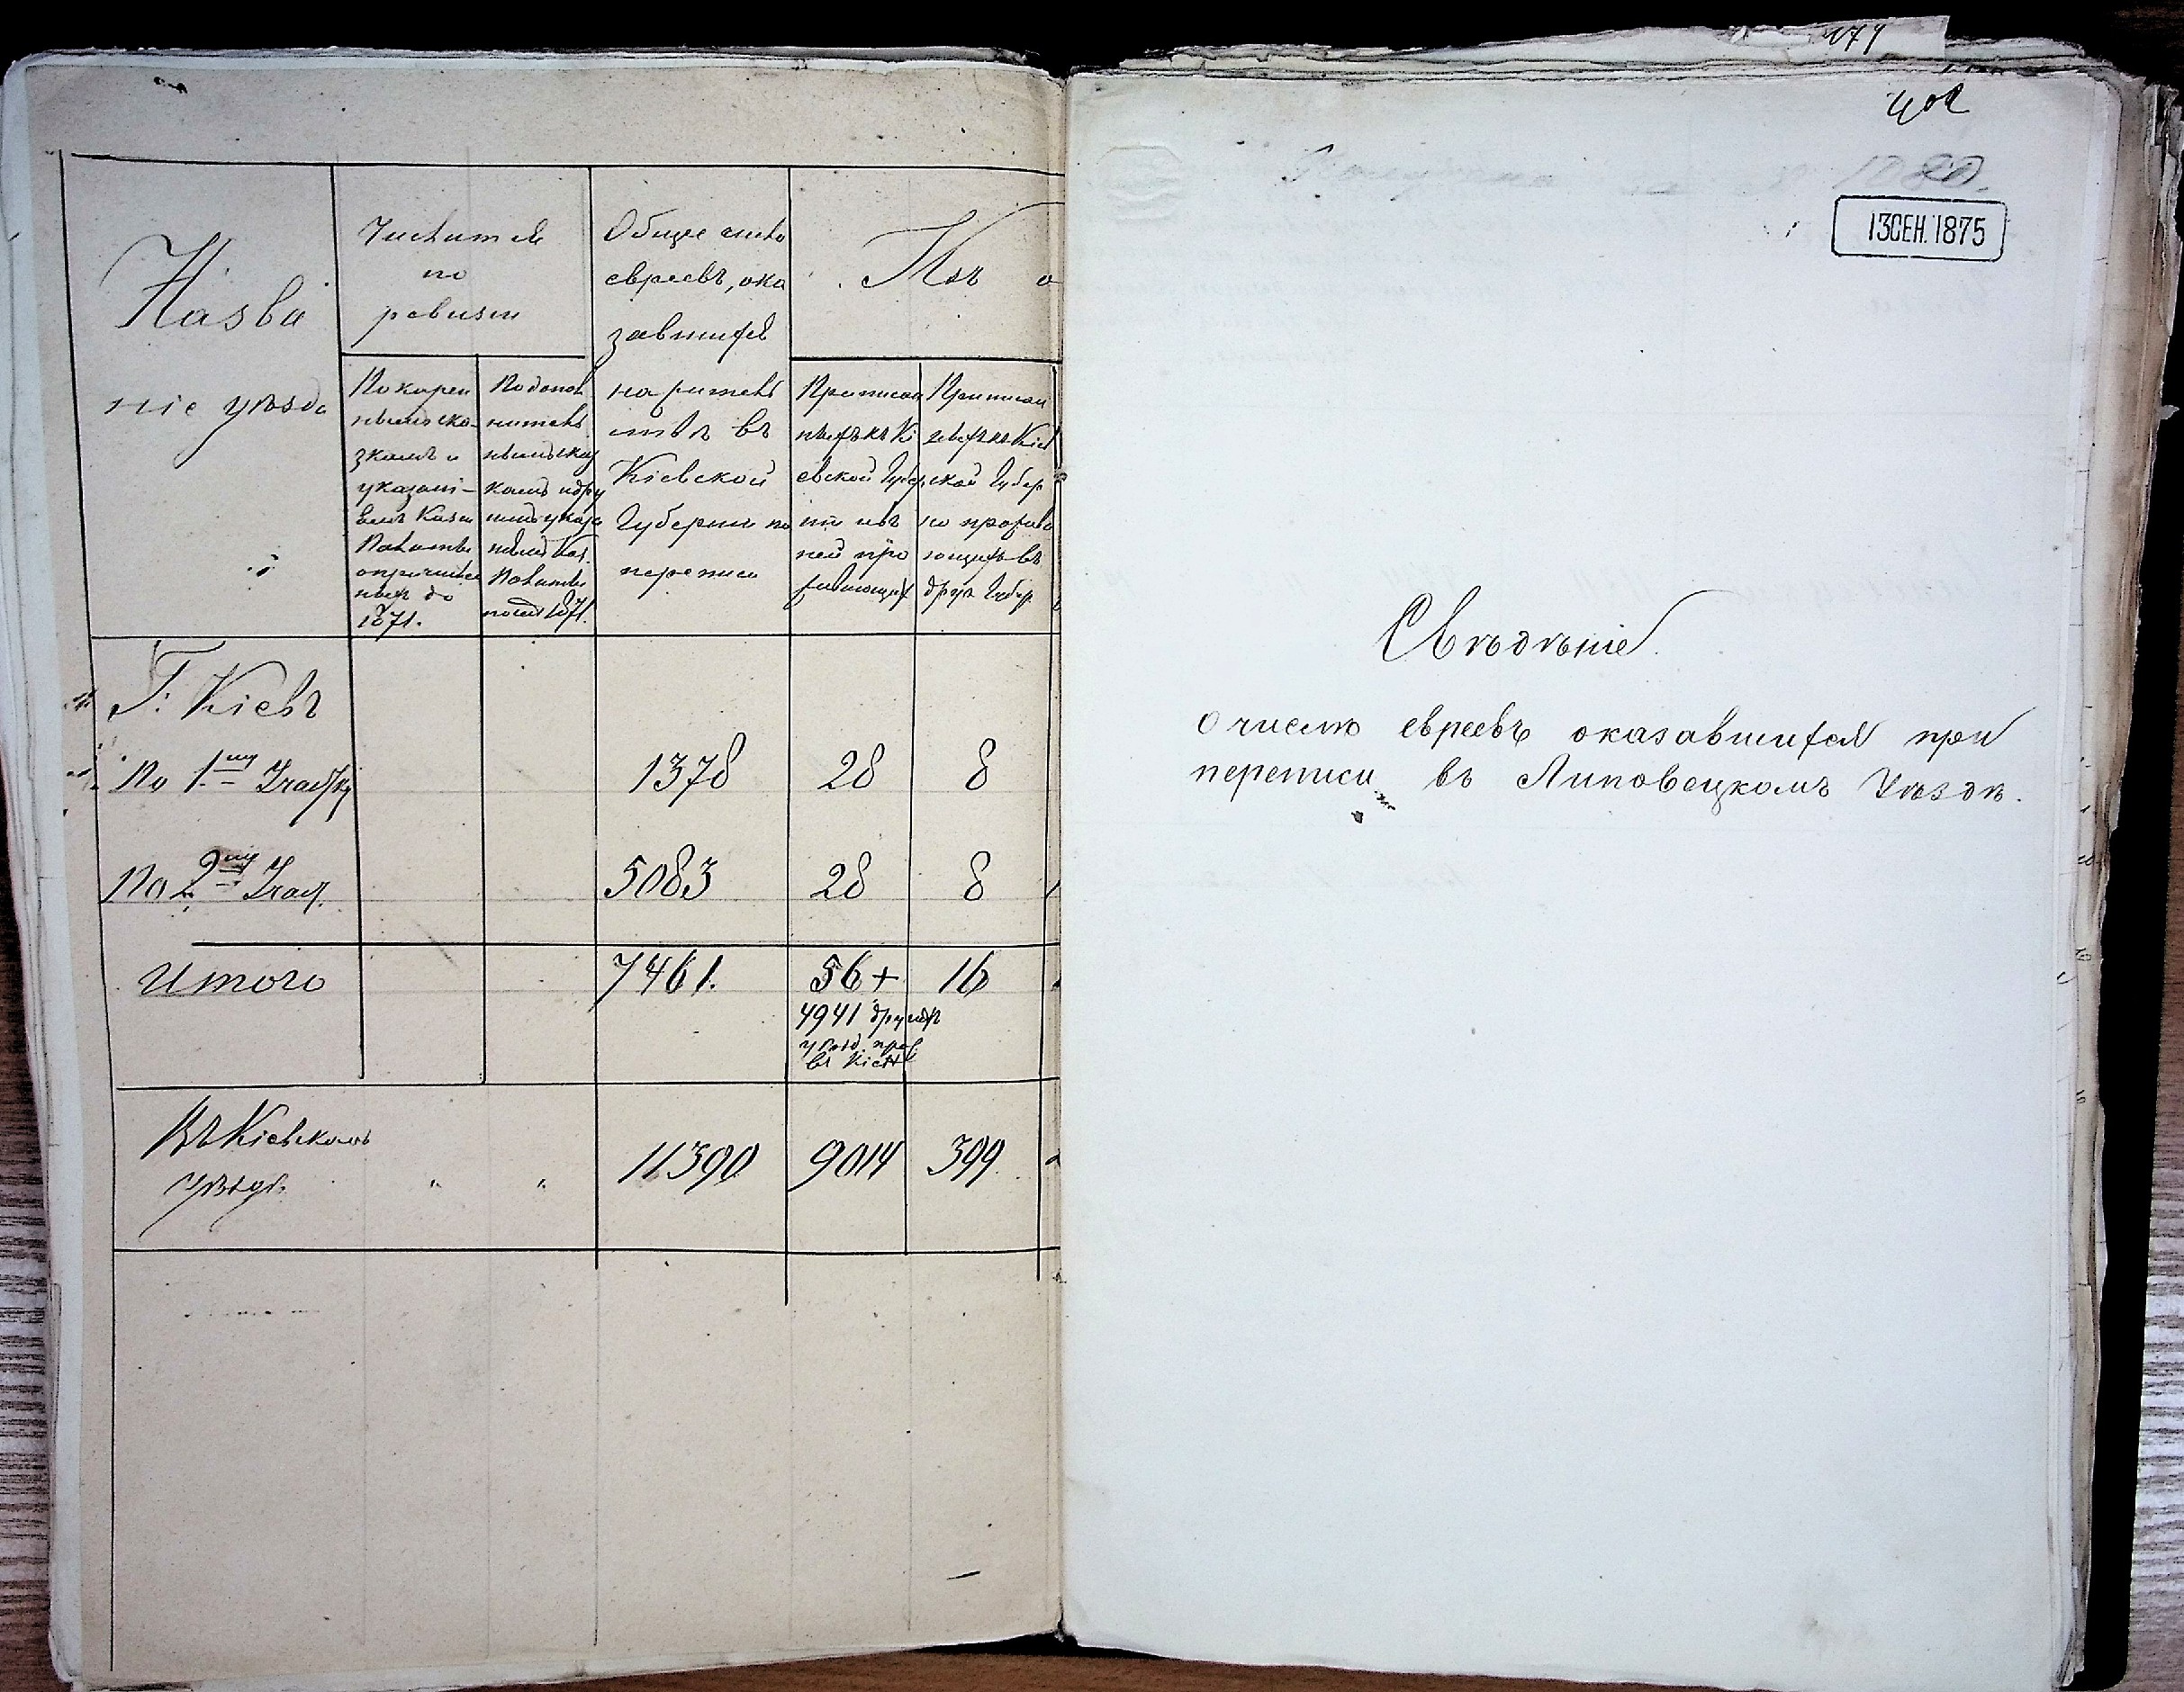 Назва
ніе уѣзда
Числится
по
ревизіи
По корен
нымъ ска-
зкамъ и
указані-
ямъ Казен
Палаты
до
1871.
По допол
нитель
нымъ сказ
камъ и дру
гимъ указа
ніямъ Каз.
Палаты
послѣ 1871.
Общее число
евреевъ, ока
завшихся
на житель
ствѣ въ
Кіевской
Губерніи по
переписи
Изъ о
Приписан
ныхъ къ Кі
евской Губер
ніи и въ
ней про
живающихъ
Приписан
ныхъ къ Кіев
ской Губер
но прожива
ющихъ въ
друг. Губер.
Г. Кіевъ
По 1му Участку 1378 28 8
По 2му Участ. 5083 28 8
Итого 7461. 56 + 16
4941 другихъ
уѣзд. прож.
въ Кіевѣ
Въ Кіевскомъ
Уѣздѣ. " " 11390 9014 399
174
402
13 СЕН. 1875
Свѣдѣніе
о числѣ евреевъ оказавшихся при
переписи въ Липовецкомъ Уѣздѣ.